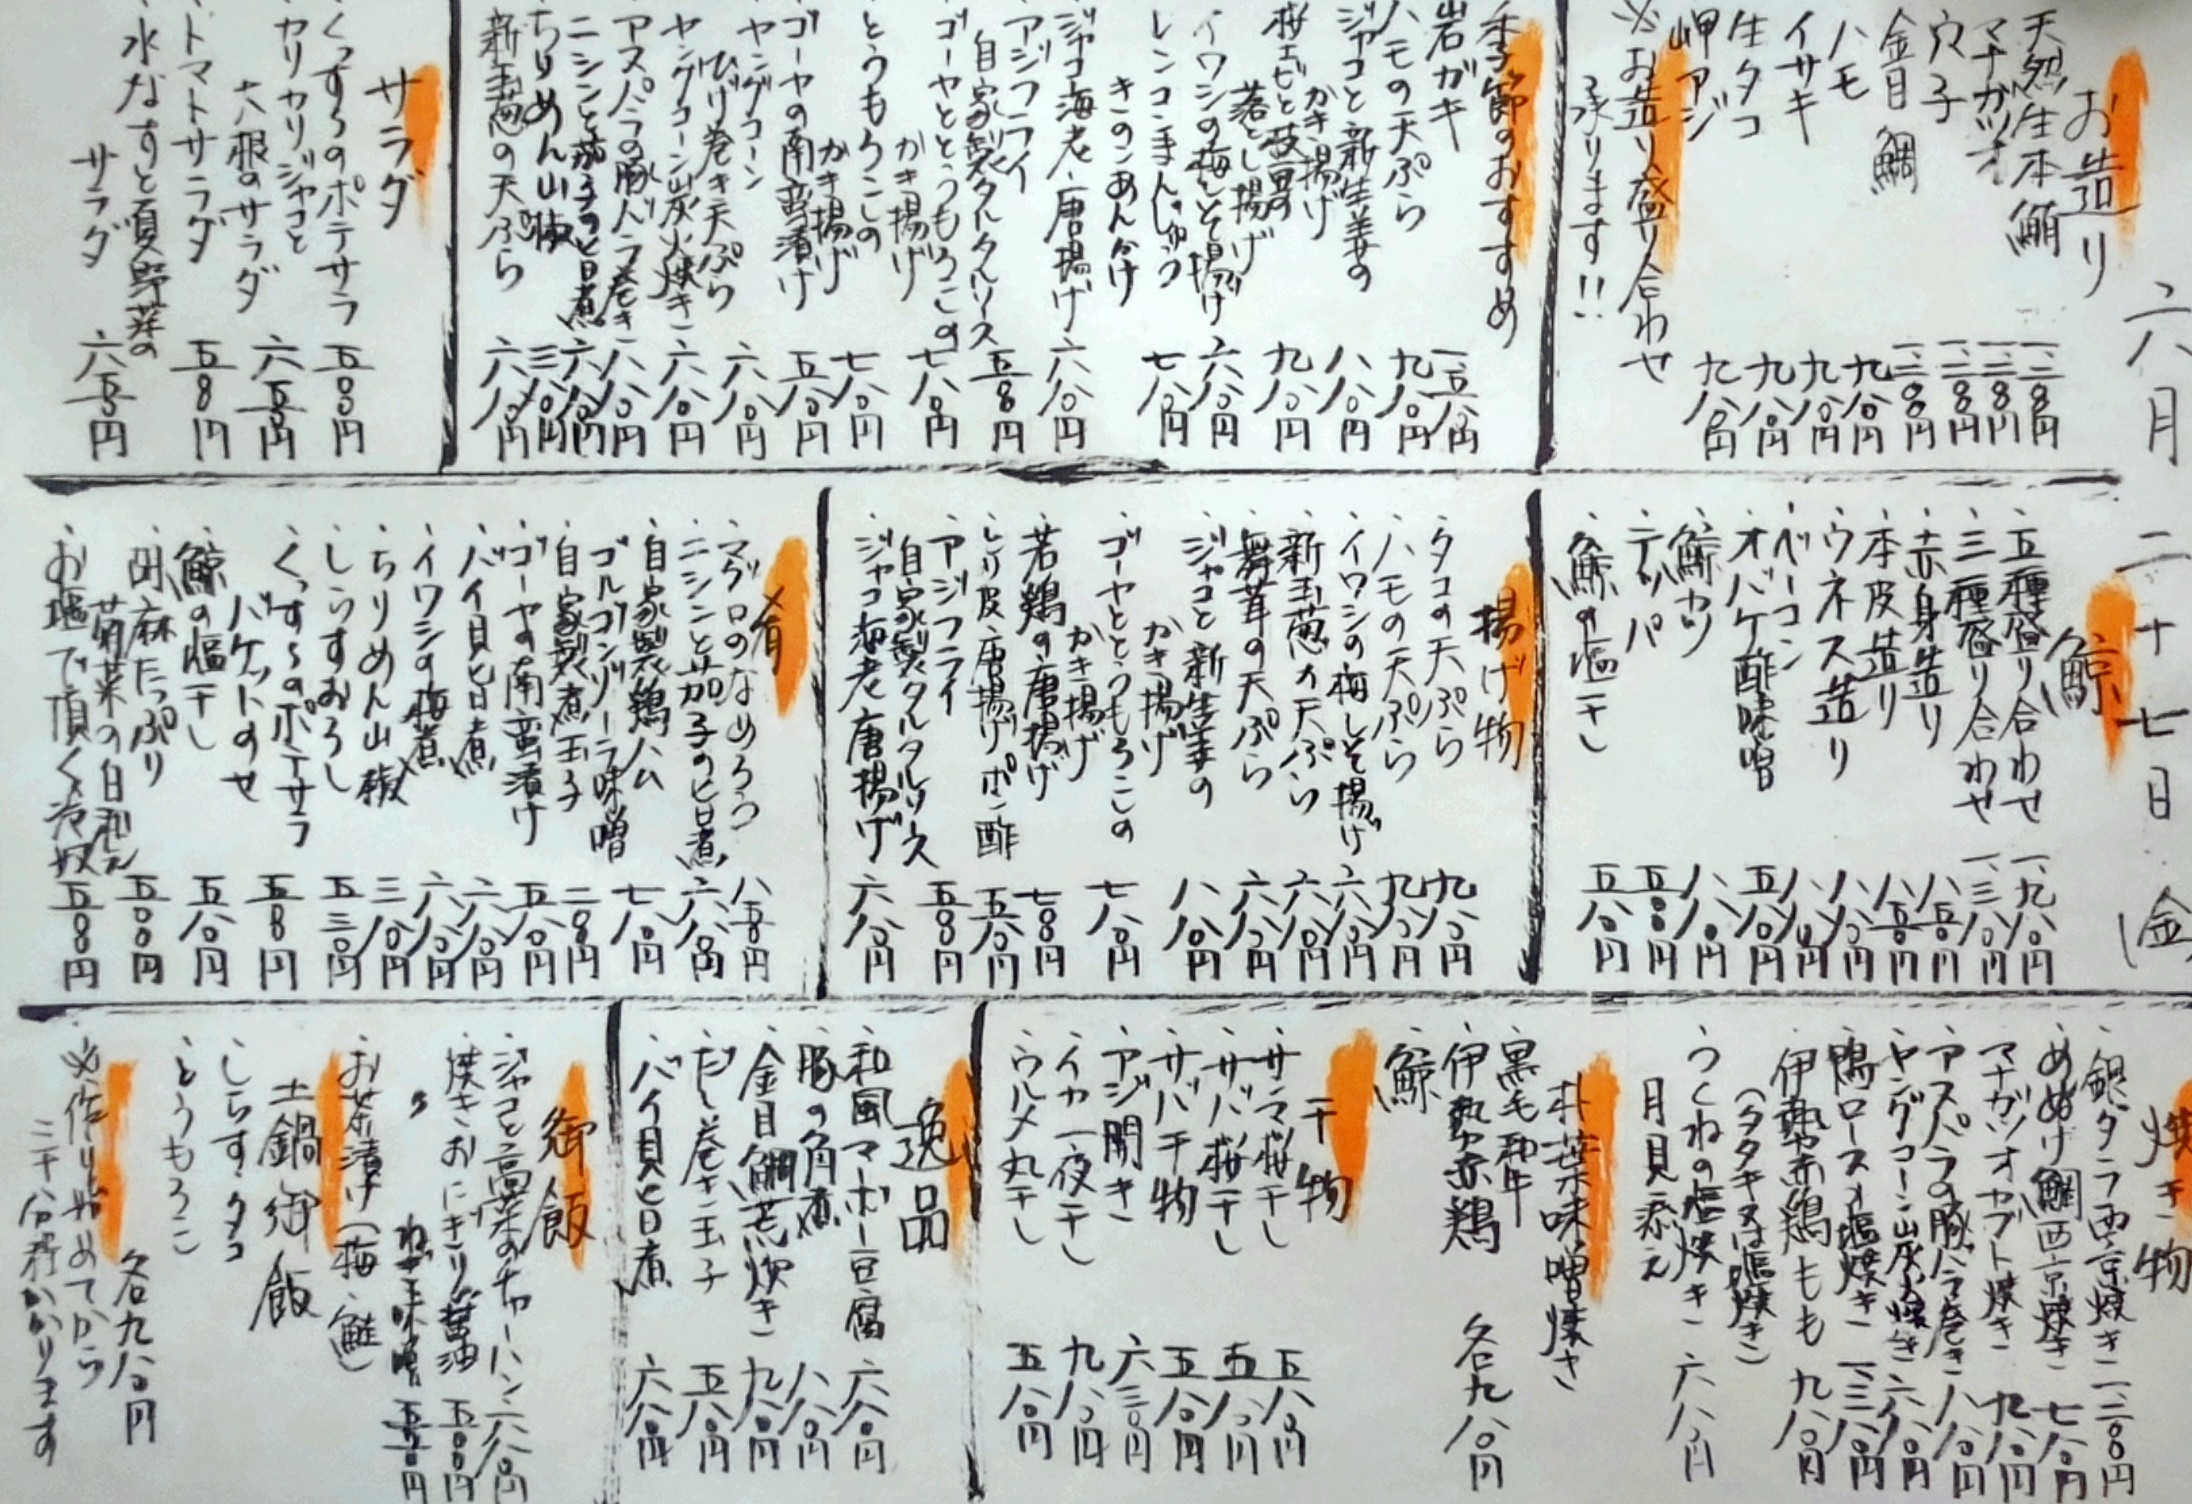 六月二十七日(金)
お造り
天然生本鮪 一、三〇〇円
マナガツオ 一、二〇〇円
穴子 一、二〇〇円
金目鯛 一、三〇〇円
ハモ 九八〇円
イサキ 九八〇円
生タコ 九八〇円
岬アジ 九八〇円
※お造り盛り合わせ
承ります!!
季節のおすすめ
岩ガキ 一、五八〇円
ハモの天ぷら 九八〇円
ジャコと新生姜の
かき揚げ 八八〇円
桜エビと枝豆の
落とし揚げ 九八〇円
イワシの梅しそ揚げ 六八〇円
レンコンまんじゅう
きのこあんかけ 七八〇円
ジャコ海老唐揚げ 六八〇円
アジフライ
自家製タルタルソース 五八〇円
ゴーヤととうもろこしの
かき揚げ 七八〇円
とうもろこしの
かき揚げ 七八〇円
ゴーヤの南蛮漬け 五八〇円
ヤングコーン
ひげ巻き天ぷら 六八〇円
ヤングコーン炭火焼き 六八〇円
アスパラの豚バラ巻き 八八〇円
ニシンと茄子の旨煮 六八〇円
ちりめん山椒 三八〇円
新玉葱の天ぷら 六八〇円
サラダ
くっすぅのポテサラ 五八〇円
カリカリジャコと
大根のサラダ 六五〇円
トマトサラダ 五八〇円
水なすと夏野菜の
サラダ 六五〇円
鯨
・五種盛り合わせ 一、九八〇円
・三種盛り合わせ 一、三八〇円
・赤身造り 八五〇円
・本皮造り 八五〇円
・ウネス造り 八八〇円
・ベーコン 八八〇円
・オバケ酢味噌 五八〇円
・鯨カツ 八八〇円
・テッパ 五八〇円
・鯨の塩干し 五八〇円
揚げ物
・タコの天ぷら 九八〇円
・ハモの天ぷら 九八〇円
・イワシの梅しそ揚げ 六八〇円
・新玉葱の天ぷら 六八〇円
・舞茸の天ぷら 六八〇円
・ジャコと新生姜の
かき揚げ 八八〇円
・ゴーヤととうもろこしの
かき揚げ 七八〇円
・若鶏の唐揚げ 七八〇円
・とり皮唐揚げポン酢 五八〇円
・アジフライ
自家製タルタルソース 五八〇円
・ジャコ海老唐揚げ 六八〇円
肴
・マグロのなめろう 八五〇円
・ニシンと茄子の旨煮 六八〇円
・自家製鶏ハム 七八〇円
・ゴルゴンゾーラ味噌 二八〇円
・自家製煮玉子
・ゴーヤの南蛮漬け 五八〇円
・バイ貝旨煮 六八〇円
・イワシの梅煮 六八〇円
・ちりめん山椒 三八〇円
・しらすおろし 五三〇円
・くっすぅのポテサラ
バケットのせ 五八〇円
・鯨の塩干し 五八〇円
・胡麻たっぷり
菊菜の白和え 五八〇円
・お塩で頂く冷奴 五八〇円
焼き物
・銀ダラ西京焼き 一、二〇〇円
・めぬけ鯛西京焼き 七八〇円
・マナガツオカブト焼き 九八〇円
・アスパラの豚バラ巻き 八八〇円
・ヤングコーン炭火焼き 六八〇円
・鴨ロース塩焼き 一、三八〇円
・伊勢赤鶏もも 九八〇円
(タタキ又は塩焼き)
・つくねの塩焼き 六八〇円
月見添え
朴葉味噌焼き
・黒毛和牛
・伊勢赤鶏 各九八〇円
・鯨
干物
・サンマ桜干し 五八〇円
・サバ桜干し 五八〇円
・サバ干物 五八〇円
・アジ開き 六三〇円
・イカ一夜干し 九八〇円
・ウルメ丸干し 五八〇円
逸品
・和風マーボー豆腐 六八〇円
・豚の角煮 八八〇円
・金目鯛荒炊き 九八〇円
・だし巻き玉子 五八〇円
・バイ貝旨煮 六八〇円
御飯
・ジャコと高菜のチャーハン 六八〇円
・焼きおにぎり醤油 五〇〇円
・〃 ねぎ味噌 五五〇円
・お茶漬け(梅・鮭)
土鍋御飯
・しらす・タコ
・とうもろこし
各九八〇円
※作り始めてから
三十分程かかります